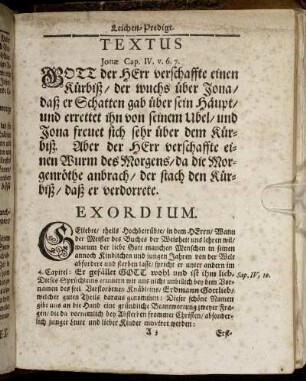 Leichen-Predigt.
TEXTUS
Jonæ Cap. IV. v. 6. 7.
GOTT der HErr verschaffte einen
Kürbiß/ der wuchs über Jona/
daß er Schatten gab über sein Häupt/
und errettet ihn von seinem Ubel/ und
Jona freuet sich sehr über dem Kür-
biß. Aber der HErr verschaffte ei-
nen Wurm des Morgens/ da die Mor-
genröthe anbrach/ der stach den Kür-
biß/ daß er verdorrete.
EXORDIUM.
GEliebte/ theils Hochbetrübte/ in dem HErrn/ Wann
der Meister des Buchs der Weisheit uns lehren will/
warum der liebe Gott manchen Menschen in seinen
annoch Kindlichen und jungen Jahren von der Welt
abfordere und sterben laste/ spricht er unter andern im
4. Capitel: Es gefället GOTT wohl und ist ihm lieb. Sap. IV, 10.
Dieses Spruchleins erinnern wir uns nicht unbillich bey dem Vor-
namen des seel. Verstorbenen Knäbleins/ Erdmann Gottliebs/
welcher guten Theils daraus genommen: Dieser schöne Namen
gibt uns an die Hand eine gründliche Beantwortung zweyer Fra-
gen/ die da vornemlich bey Absterben frommer Christen/ absonder-
lich junger Leute und lieber Kinder moviret werden:
A 3 Erst-